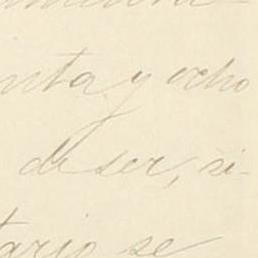 nta y ocho
de ser, si-
tario se